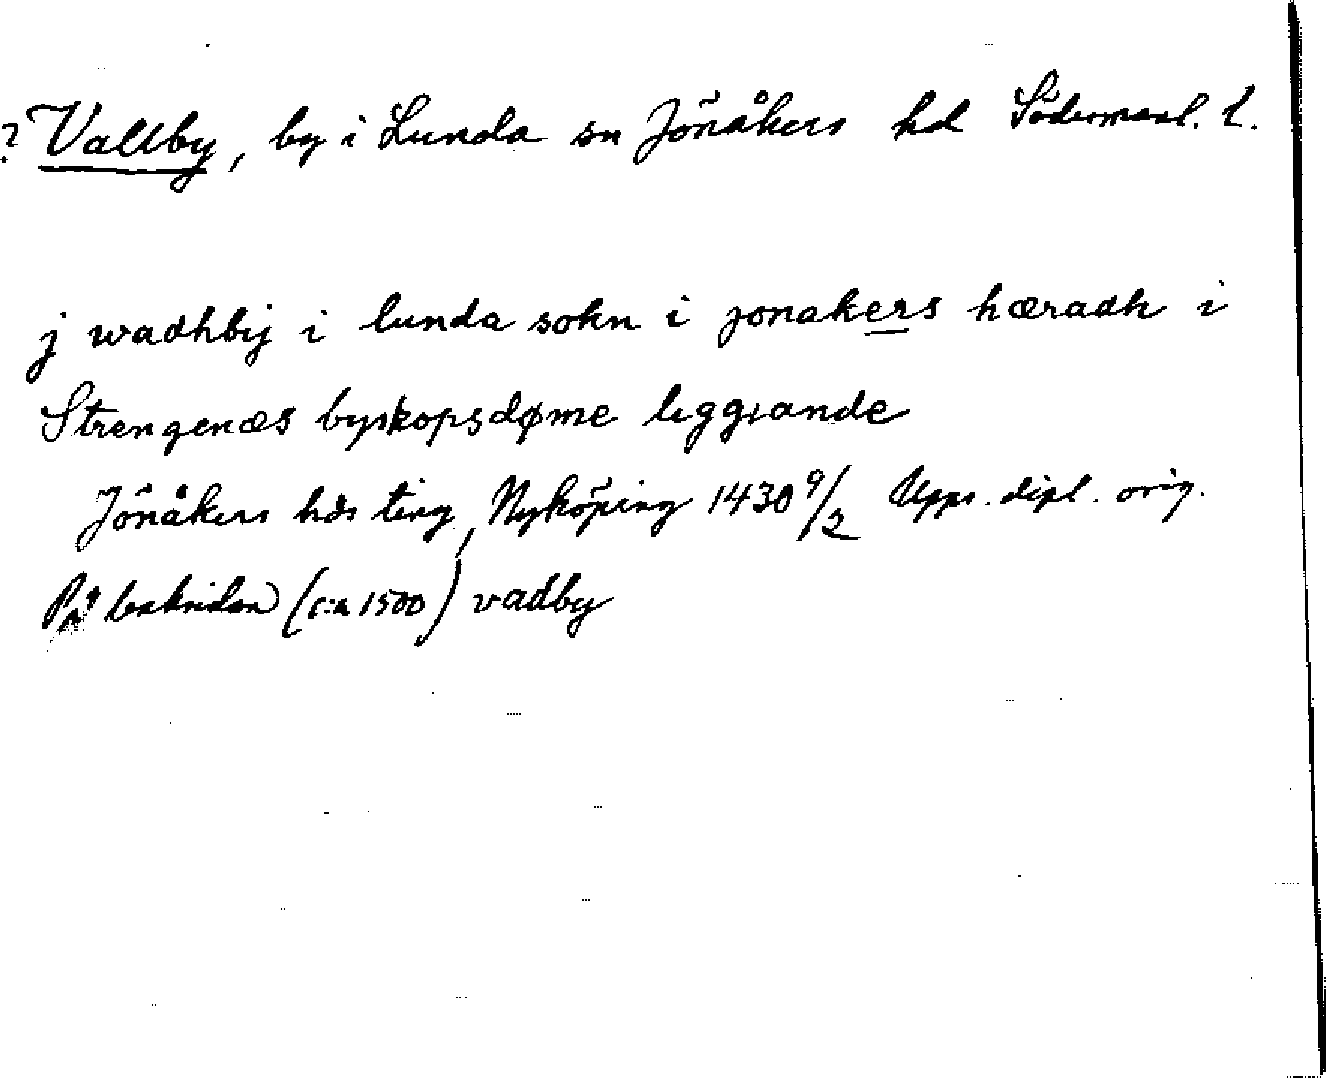 ? Vallby, by i Lunda sn Jönåkers hd Södermanl. l.
j wadhby i lunda sokn i jonakers hæradh i
Strengenæs byskopsdøme liggiande
Jönåkers hds ting, Nyköping 1430 9/2 Upps. dipl. orig.
På baksidan (c:a 1500) vadby